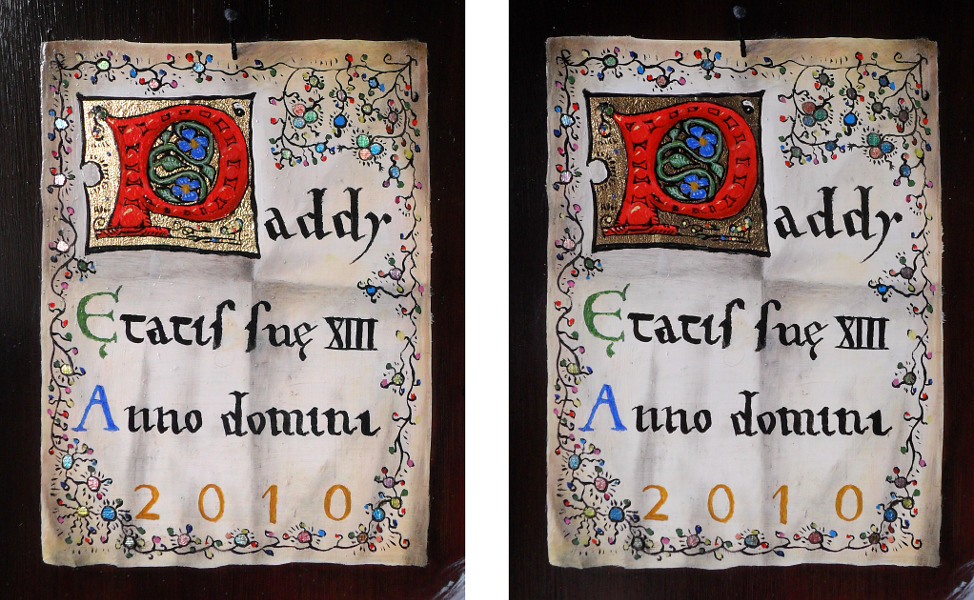 Paddy
Etatis suę XIII
Anno domini
2010
Paddy
Etatis suę XIII
Anno domini
2010